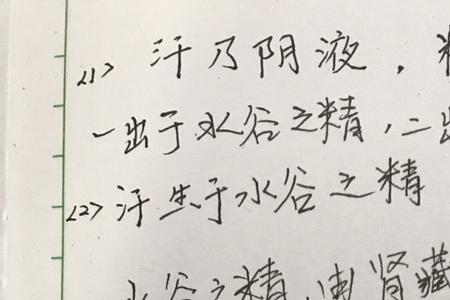 <1> 汗乃阴液，
一出于水谷之精，二出
<2> 汗生于水谷之精
水谷之精，由肾藏